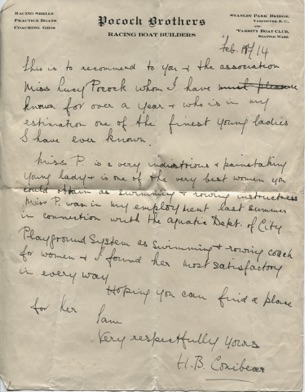 RACING SHELLS
PRACTICE BOATS
COACHING GIGS
Pocock Brothers
RACING BOAT BUILDERS
STANLEY PARK BRIDGE,
VANCOUVER, B. C.
AND
VARSITY BOAT CLUB,
SEATTLE, WASH.
Feb. 18/14
This is to recommend to you & the association
Miss Lucy Pocock whom I have
known for over a year & who is in my
estimation one of the finest young ladies
I have ever known.
Miss P. is a very industrious & painstaking
young lady & is one of the very best women you
could obtain as swimming & rowing instructress
Miss P. was in my employment last summer
in connection with the aquatic Dept. of City
Playground System as swimming & rowing coach
for women & I found her most satisfactory
in every way
Hoping you can find a place
for her
I am
Very respectfully yours
H.B. Conibear